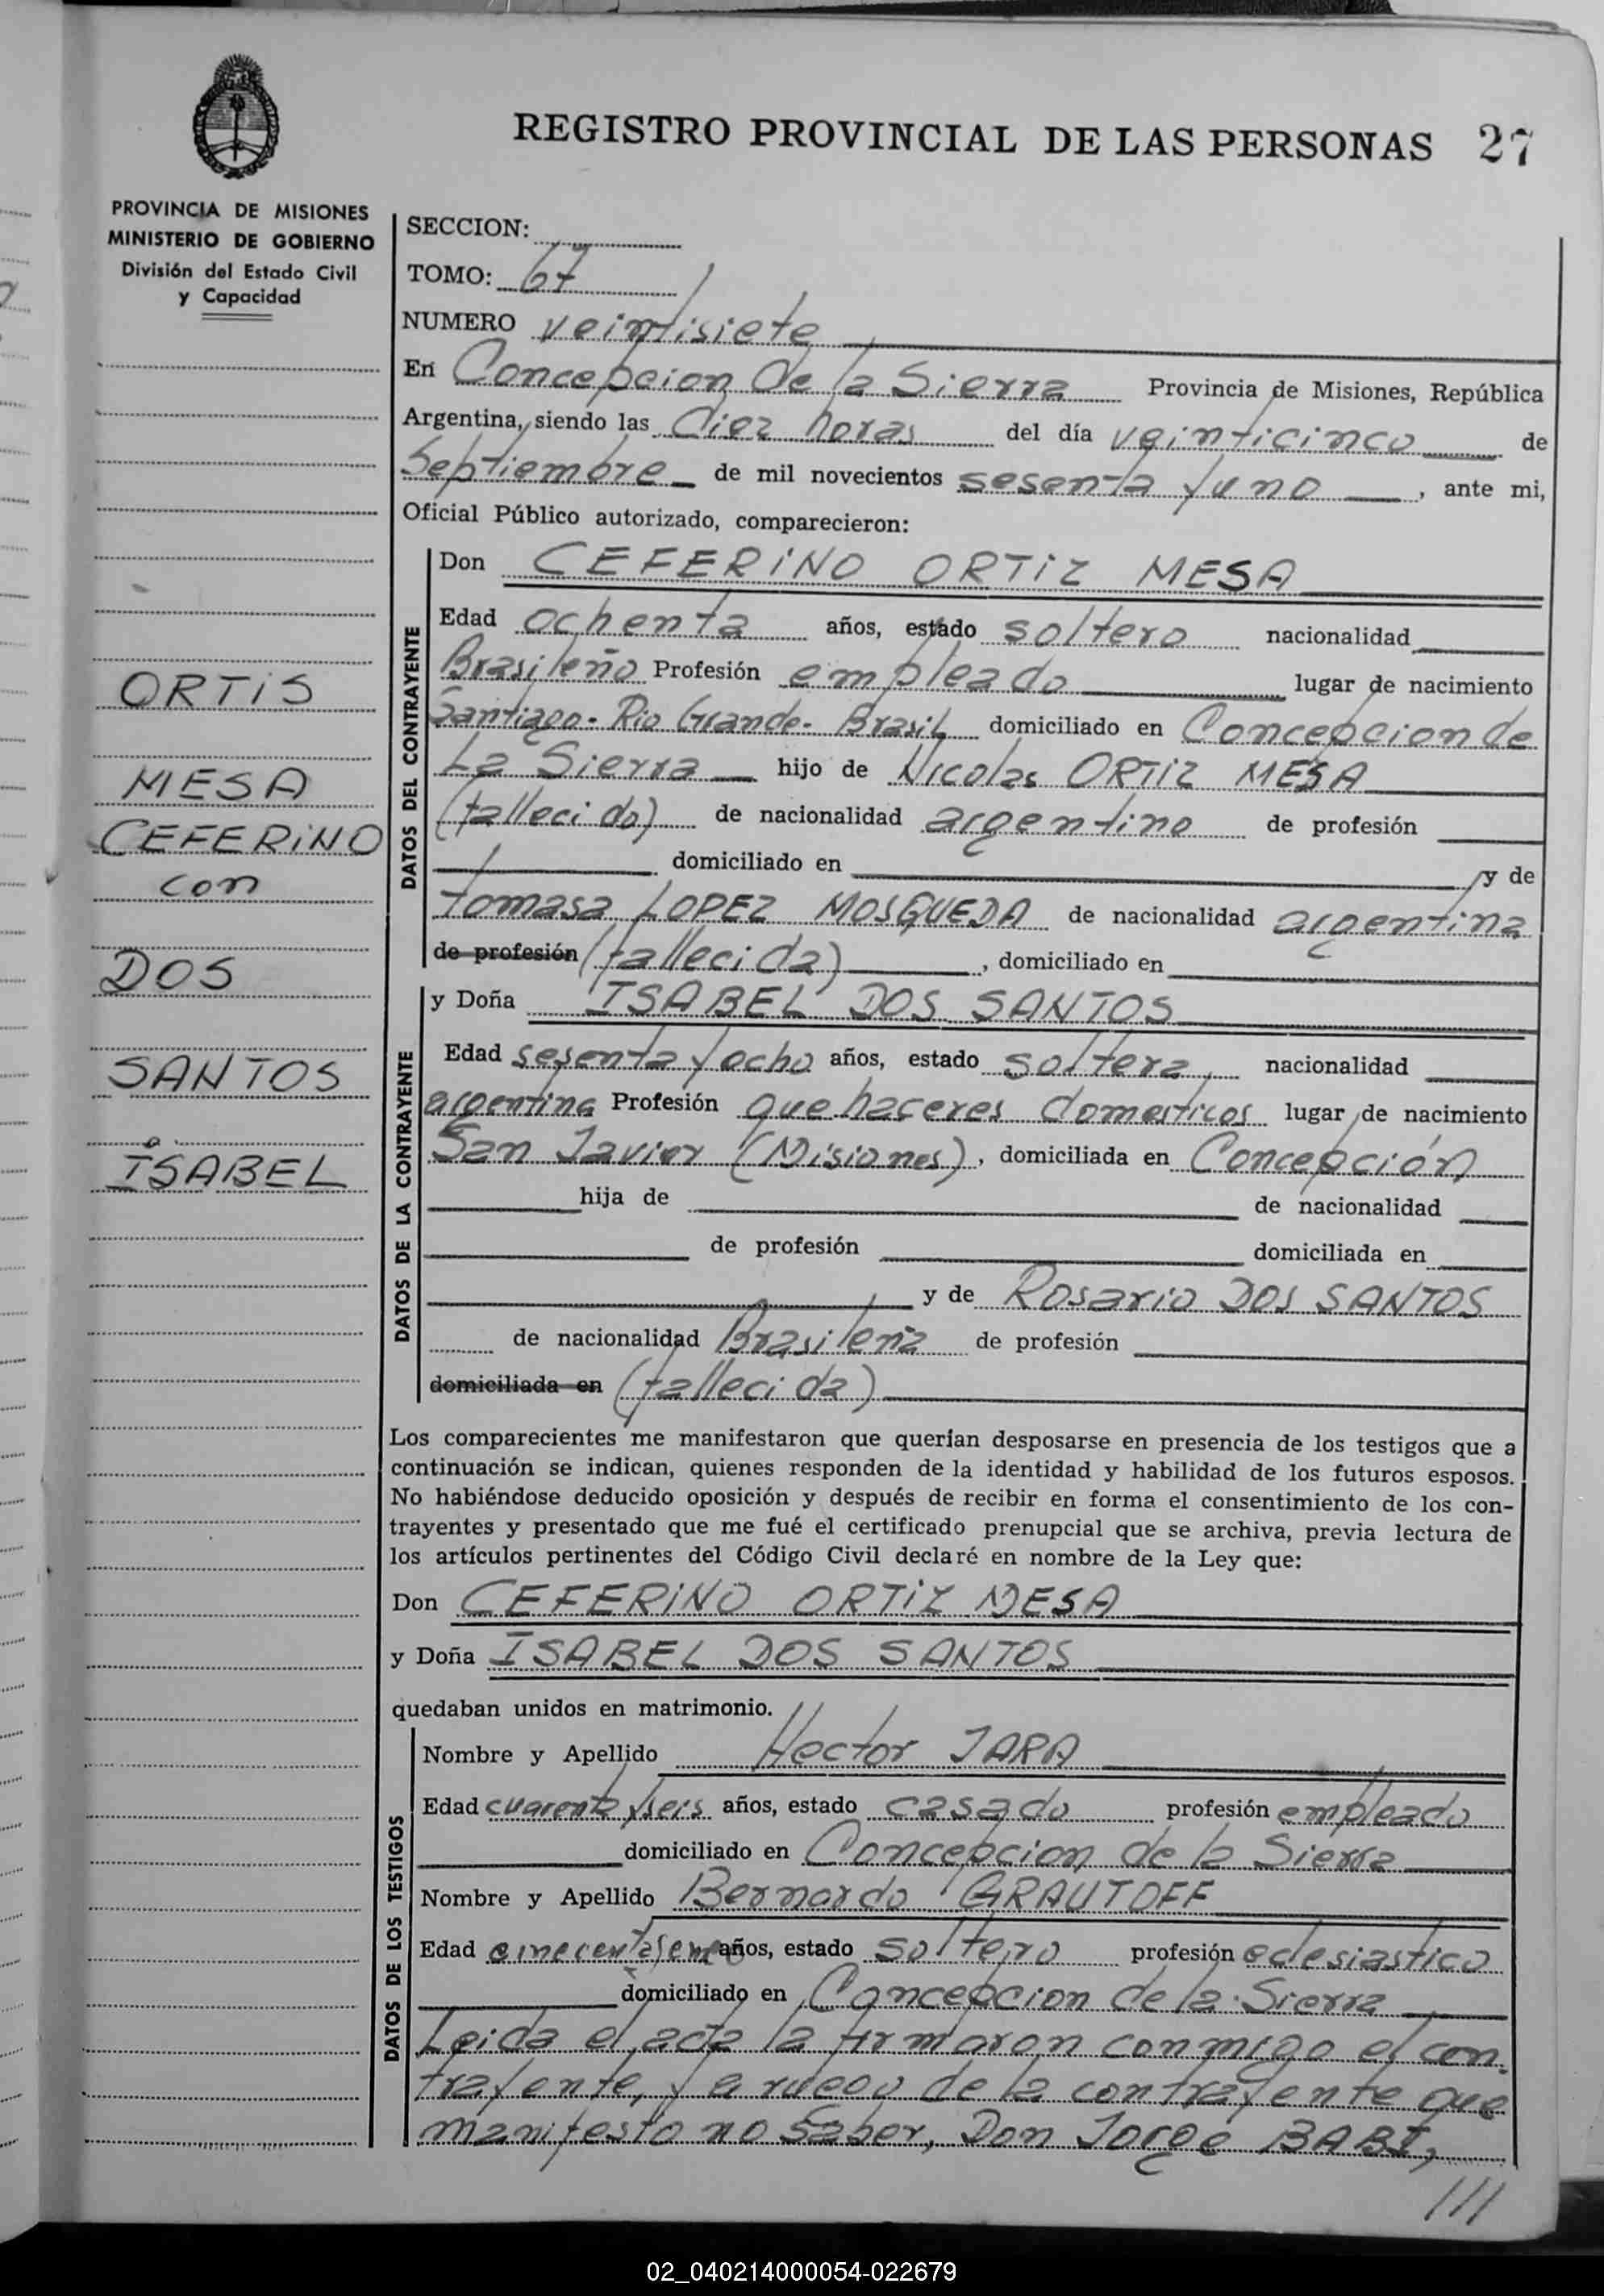 REGISTRO PROVINCIAL DE LAS PERSONAS 27
PROVINCIA DE MISIONES
MINISTERIO DE GOBIERNO
División del Estado Civil
y Capacidad
ORTIS
MESA
CEFERINO
con
DOS
SANTOS
ISABEL
SECCION:
TOMO: 67
NUMERO veintisiete
En Concepcion de la Sierra Provincia de Misiones, República
Argentina, siendo las diez horas del día veinticinco de
Septiembre de mil novecientos sesenta y uno, ante mi,
Oficial Público autorizado, comparecieron:
DATOS DEL CONTRAYENTE
Don CEFERINO ORTIZ MESA
Edad ochenta años, estado soltero nacionalidad
Brasileño Profesión empleado lugar de nacimiento
Santiago - Rio Grande - Brasil domiciliado en Concepcion de
La Sierra hijo de Nicolas ORTIZ MESA
(fallecido) de nacionalidad argentino de profesión
domiciliado en y de
tomasa LOPEZ MOSQUEDA de nacionalidad argentina
de profesión (fallecida), domiciliado en
DATOS DE LA CONTRAYENTE
y Doña ISABEL DOS SANTOS
Edad sesenta y ocho años, estado soltera, nacionalidad
argentina Profesión quehaceres domesticos lugar de nacimiento
San Javier (Misiones), domiciliada en Concepción
hija de de nacionalidad
de profesión domiciliada en
y de Rosario DOS SANTOS
de nacionalidad Brasileña de profesión
domiciliada en (fallecida)
Los comparecientes me manifestaron que querían desposarse en presencia de los testigos que a
continuación se indican, quienes responden de la identidad y habilidad de los futuros esposos.
No habiéndose deducido oposición y después de recibir en forma el consentimiento de los con-
trayentes y presentado que me fué el certificado prenupcial que se archiva, previa lectura de
los artículos pertinentes del Código Civil declaré en nombre de la Ley que:
Don CEFERINO ORTIZ MESA
y Doña ISABEL DOS SANTOS
quedaban unidos en matrimonio.
DATOS DE LOS TESTIGOS
Nombre y Apellido Hector JARA
Edad cuarenta y seis años, estado casado profesión empleado
domiciliado en Concepcion de la Sierra
Nombre y Apellido Bernardo GRAUTOFF
Edad años, estado soltero profesión eclesiastico
domiciliado en Concepcion de la Sierra
Leida el acta la firmaron conmigo el con
trayente, y a ruego de la contrayente que
manifesto no saber, Don Jorge BABI,
///
02_040214000054-022679